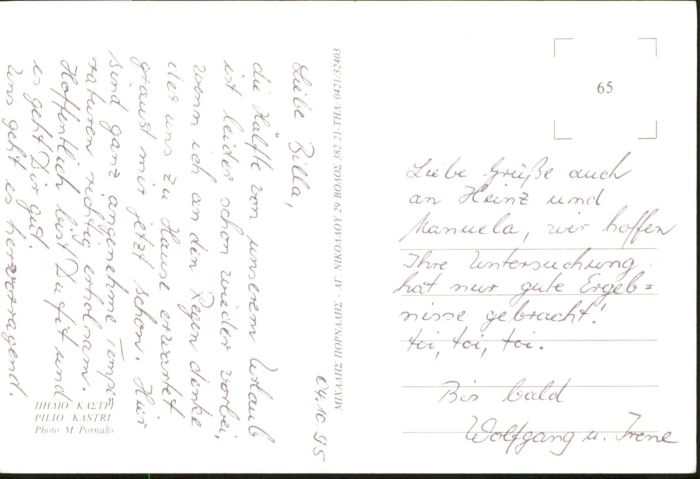 04.10.95
Liebe Billa,
die Hälfte von unserem Urlaub
ist leider schon wieder vorbei,
wenn ich an den Regen denke
der uns zu Hause erwartet
graust mir jetzt schon. Hier
sind ganz angenehme Tempe=
raturen richtig erholsam.
Hoffentlich bist Du fit und
es geht Dir gut.
Uns geht es hervorragend.
ΠΗΛΙΟ - ΚΑΣΤΡΙ
PILIO KASTRI
Photo M. Pornalis
ΜΙΧΑΛΗΣ ΠΟΡΝΑΛΗΣ
65
Liebe Grüße auch
an Heinz und
Manuela, wir hoffen
Ihre Untersuchung
hat nur gute Ergeb=
nisse gebracht!
toi, toi, toi.
Bis bald
Wolfgang u. Irene